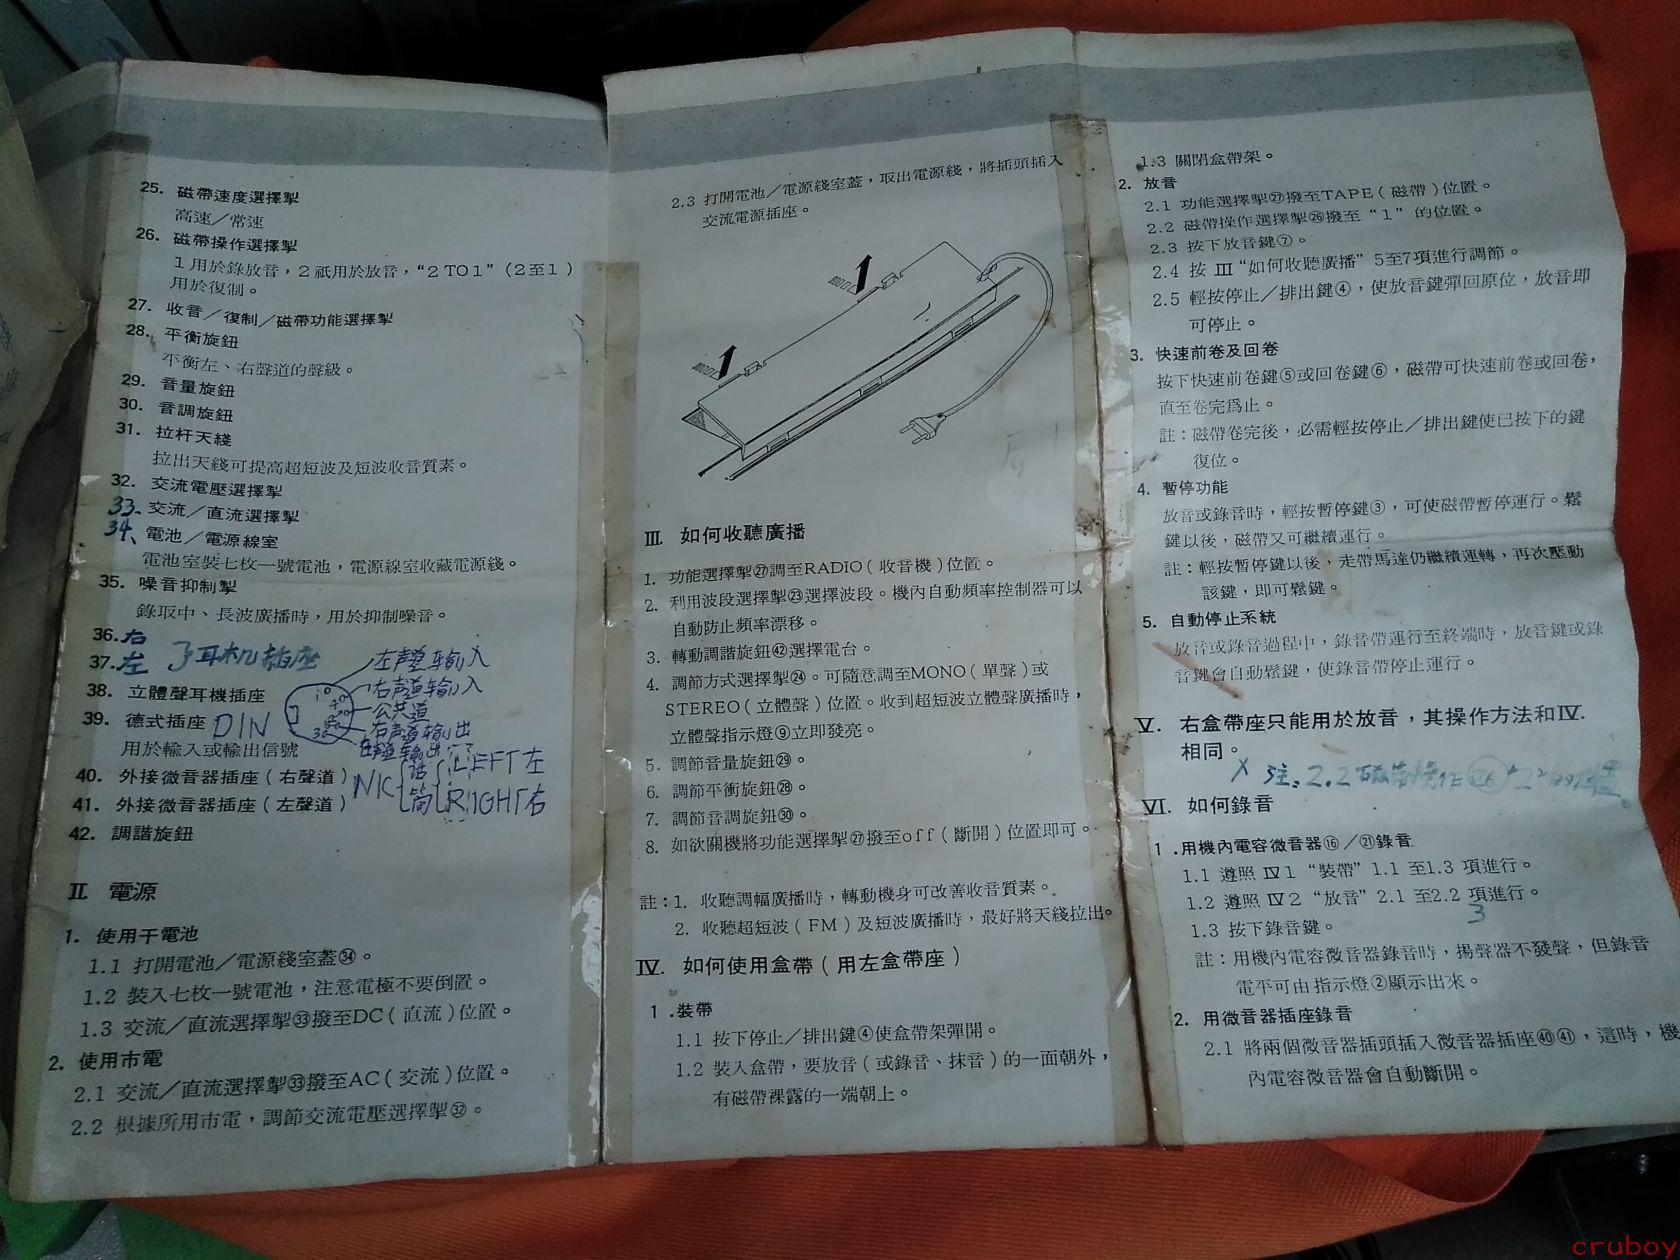 25. 磁帶速度選擇掣
高速／常速
26. 磁帶操作選擇掣
1用於錄放音，2祇用於放音，“2 TO 1”（2至1）
用於復制。
27. 收音／復制／磁帶功能選擇掣
28. 平衡旋鈕
平衡左、右聲道的聲級。
29. 音量旋鈕
30. 音調旋鈕
31. 拉杆天綫
拉出天綫可提高超短波及短波收音質素。
32. 交流電壓選擇掣
33. 交流／直流選擇掣
34、電池／電源線室
電池室裝七枚一號電池，電源線室收藏電源綫。
35. 噪音抑制掣
錄取中、長波廣播時，用於抑制噪音。
36. 右
37. 左 耳机插座
38. 立體聲耳機插座
39. 德式插座 DIN
用於輸入或輸出信號
左声道输入
右声道输入
公共道
右声道输出
左声道输出
40. 外接微音器插座（右聲道）
41. 外接微音器插座（左聲道）
MIC 话筒 LEFT左
RIGHT右
42. 調諧旋鈕
II. 電源
1. 使用干電池
1.1 打開電池／電源綫室蓋㉞。
1.2 裝入七枚一號電池，注意電極不要倒置。
1.3 交流／直流選擇掣㉝撥至DC（直流）位置。
2. 使用市電
2.1 交流／直流選擇掣㉝撥至AC（交流）位置。
2.2 根據所用市電，調節交流電壓選擇掣㉜。
2.3 打開電池／電源綫室蓋，取出電源綫，將插頭插入
交流電源插座。
III. 如何收聽廣播
1. 功能選擇掣㉗調至RADIO（收音機）位置。
2. 利用波段選擇掣㉓選擇波段。機內自動頻率控制器可以
自動防止頻率漂移。
3. 轉動調諧旋鈕㊷選擇電台。
4. 調節方式選擇掣㉔。可隨意調至MONO（單聲）或
STEREO（立體聲）位置。收到超短波立體聲廣播時，
立體聲指示燈⑨立即發亮。
5. 調節音量旋鈕㉙。
6. 調節平衡旋鈕㉘。
7. 調節音調旋鈕㉚。
8. 如欲關機將功能選擇掣㉗撥至off（斷開）位置即可。
註：1. 收聽調幅廣播時，轉動機身可改善收音質素。
2. 收聽超短波（FM）及短波廣播時，最好將天綫拉出。
IV. 如何使用盒帶（用左盒帶座）
1 .裝帶
1.1 按下停止／排出鍵④使盒帶架彈開。
1.2 裝入盒帶，要放音（或錄音、抹音）的一面朝外，
有磁帶裸露的一端朝上。
1.3 關閉盒帶架。
2. 放音
2.1 功能選擇掣㉗撥至TAPE（磁帶）位置。
2.2 磁帶操作選擇掣㉖撥至“1”的位置。
2.3 按下放音鍵⑦。
2.4 按 III“如何收聽廣播”5至7項進行調節。
2.5 輕按停止／排出鍵④，使放音鍵彈回原位，放音即
可停止。
3. 快速前卷及回卷
按下快速前卷鍵⑤或回卷鍵⑥，磁帶可快速前卷或回卷，
直至卷完爲止。
註：磁帶卷完後，必需輕按停止／排出鍵使已按下的鍵
復位。
4. 暫停功能
放音或錄音時，輕按暫停鍵③，可使磁帶暫停運行。鬆
鍵以後，磁帶又可繼續運行。
註：輕按暫停鍵以後，走帶馬達仍繼續運轉，再次壓動
該鍵，即可鬆鍵。
5. 自動停止系統
放音或錄音過程中，錄音帶運行至終端時，放音鍵或錄
音鍵會自動鬆鍵，使錄音帶停止運行。
V. 右盒帶座只能用於放音，其操作方法和IV.
相同。
X 注：2.2 磁带操作㉖“2”的位置。
VI. 如何錄音
1 .用機內電容微音器⑯／㉑錄音
1.1 遵照 IV 1 “裝帶” 1.1 至1.3 項進行。
1.2 遵照 IV 2 “放音” 2.1 至2.2 項進行。
3
1.3 按下錄音鍵。
註：用機內電容微音器錄音時，揚聲器不發聲，但錄音
電平可由指示燈②顯示出來。
2. 用微音器插座錄音
2.1 將兩個微音器插頭插入微音器插座㊵㊶，這時，機
內電容微音器會自動斷開。
cruboy